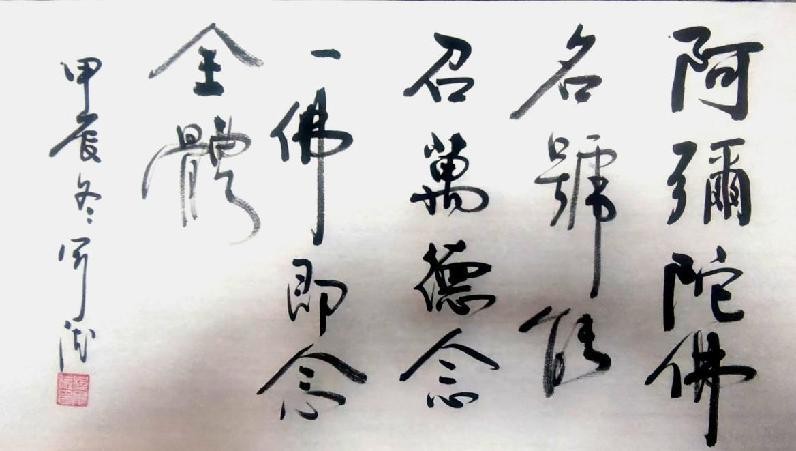 阿彌陀佛
名號能
召萬德念
一佛即念
全體
甲辰冬